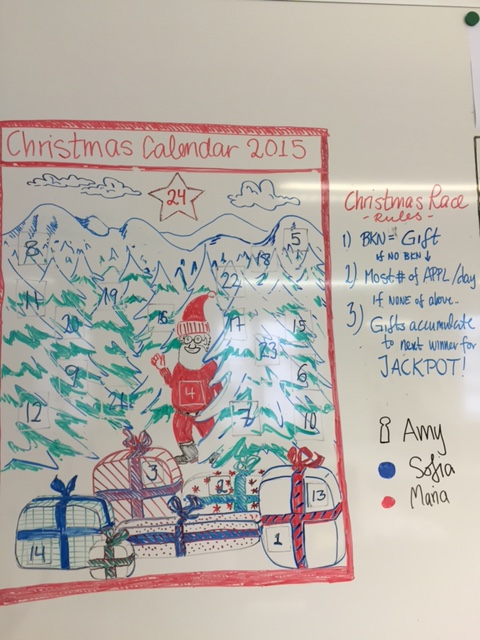 Christmas Calendar 2015
24
8
5
18
22
11
19
20
16
17
15
23
9
4
6
12
21
7
10
3
2
13
14
1
Christmas Race
- Rules -
1) BKN = Gift
if NO BKN ↓
2) Most # of APPL/day
if NONE of above..
3) Gifts accumulate
to next winner for
JACKPOT!
Amy
Sofia
Maria